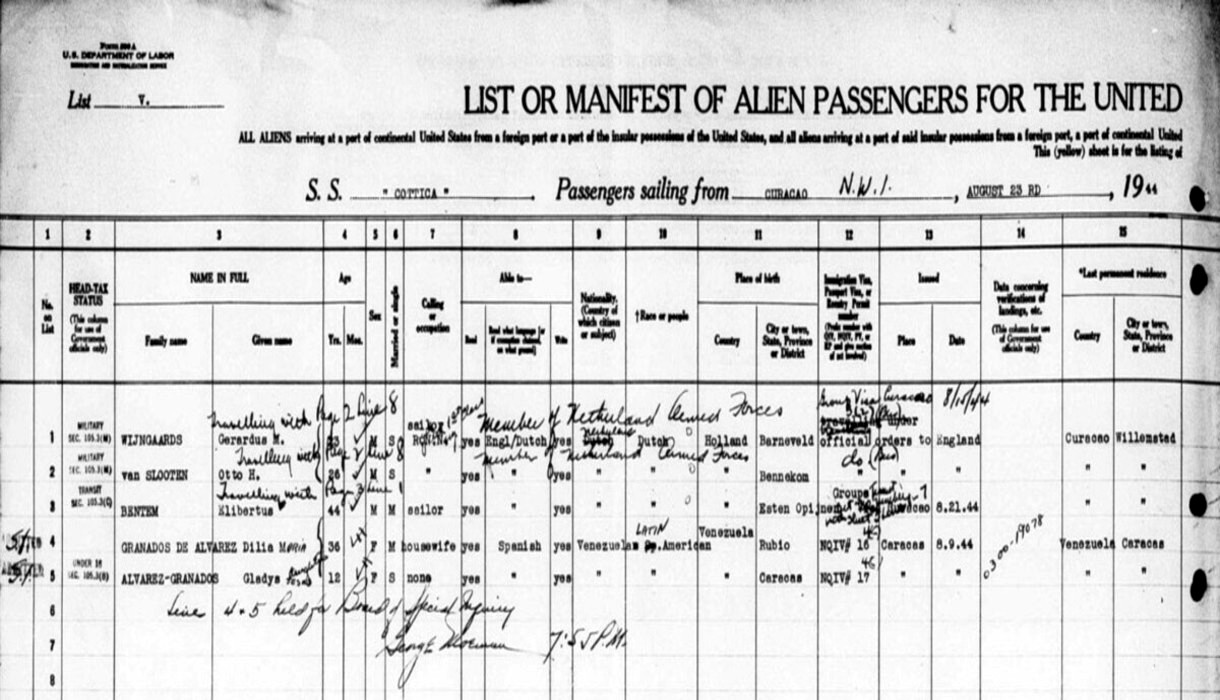 FORM 500 A
U.S. DEPARTMENT OF LABOR
IMMIGRATION AND NATURALIZATION SERVICE
List V.
LIST OR MANIFEST OF ALIEN PASSENGERS FOR THE UNITED
ALL ALIENS arriving at a port of continental United States from a foreign port or a port of the insular possessions of the United States, and all aliens arriving at a port of said insular possessions from a foreign port, a port of continental United
This (yellow) sheet is for the listing of
S. S. " COTTICA " , Passengers sailing from CURACAO N.W.I. , AUGUST 23 RD , 19 44
1 2 3 4 5 6 7 8 9 10 11 12 13 14 15
No. on List
HEAD-TAX STATUS (This column for use of Government officials only)
NAME IN FULL
Family name Given name
Age
Yrs. Mos.
Sex
Married or single
Calling or occupation
Able to—
Read Read what language (or if exemption claimed, on what ground) Write
Nationality. (Country of which citizen or subject)
†Race or people
Place of birth
Country City or town, State, Province or District
Immigration Visa, Passport Visa, or Reentry Permit number
Issued
Place Date
Data concerning verifications of landings, etc. (This column for use of Government officials only)
*Last permanent residence
Country City or town, State, Province or District
Travelling with Page 2 line 8 Member of Netherland Armed Forces Curacao 8/15/44
MILITARY
1 WIJNGAARDS Gerardus M. 23 M S sailor yes Engl/Dutch yes Dutch Dutch Holland Barneveld official orders to England Curacao Willemstad
Travelling with Page 2 line 8 Member of Netherland Armed Forces do
MILITARY
2 van SLOOTEN Otto H. 26 M S " yes " yes " " " Bennekom " " " "
Travelling with Page 3 line 1 Groups
TRANSIT
3 BENTEM Elibertus 44 M M sailor yes " yes " " " Esten Curacao 8.21.44 " "
LATIN Venezuela
4 GRANADOS DE ALVAREZ Dilia Maria 36 F M housewife yes Spanish yes Venezuela American Rubio NQIV# 16 Caracas 8.9.44 0300-19078 Venezuela Caracas
UNDER 16
5 ALVAREZ-GRANADOS Gladys daughter 12 F S none yes " yes " " " Caracas NQIV# 17 " " " "
6 Line 4 + 5 held for Board of Special Inquiry
7 7:55 P.M.
8